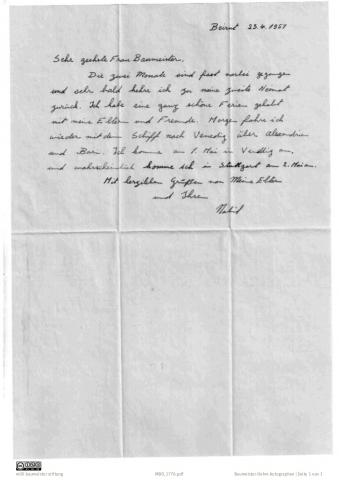 Beirut 23.4.1957
Sehr geehrte Frau Baumeister,
Die zwei Monate sind fast vorbei gegangen
und sehr bald kehre ich zu meine zweite Heimat
zurück. Ich habe eine ganz schöne Ferien gehabt
mit meine Eltern und Freunde. Morgen fahre ich
wieder mit dem Schiff nach Venedig über Alexandrien
und Bari. Ich komme am 1. Mai in Venedig an,
und wahrscheinlich komme ich in Stuttgart am 2. Mai an.
Mit herzlichen Grüßen von Meine Eltern
und Ihren
Nabil
willi baumeister stiftung
Baumeister-Archiv Autographen | Seite 1 von 1